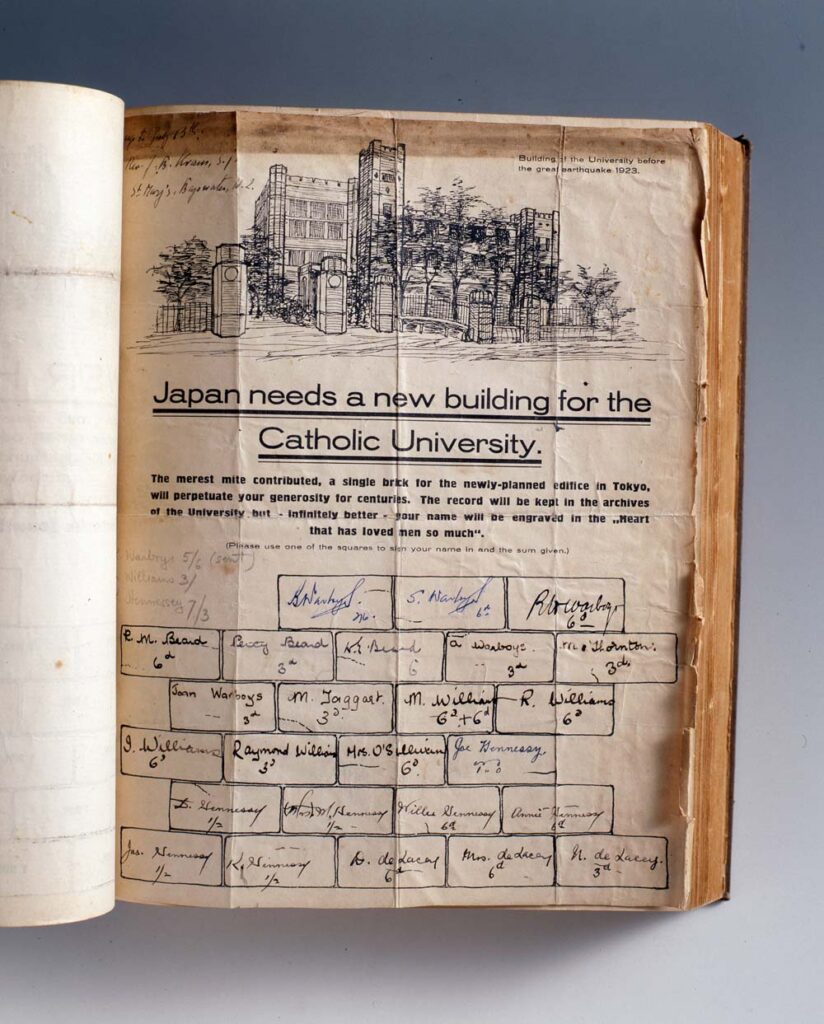 to July 13th.
Rev. J. B. Kraus, S.J
St Mary's, Bayswater, W.2.
Building of the University before
the great earthquake 1923.
Japan needs a new building for the
Catholic University.
The merest mite contributed, a single brick for the newly-planned edifice in Tokyo,
will perpetuate your generosity for centuries. The record will be kept in the archives
of the University but - infinitely better - your name will be engraved in the „Heart
that has loved men so much“.
(Please use one of the squares to sign your name in and the sum given.)
Warboys 5/6 (sent)
Williams 3/
Hennessey 7/3
Warboys. S. Warboys Warboys
6d 6d
R. M. Beard Percy Beard Beard a Warboys. Thornton.
6d 3d 6 3d 3d.
Joan Warboys M. Taggart. M. William R. Williams
3d 3d 6d+6d 6d
J. Williams Raymond William Mrs. O'Sullivan Joe Hennessy.
6d 3d 6d
D. Hennessy (Mrs) M. Hennessy Willie Hennessy Annie Hennessy
1/2 1/2 6d 6d
Jas. Hennessy K. Hennessy D. de Lacey Mrs. de Lacey N. de Lacey.
1/2 1/2 6d 6d 3d